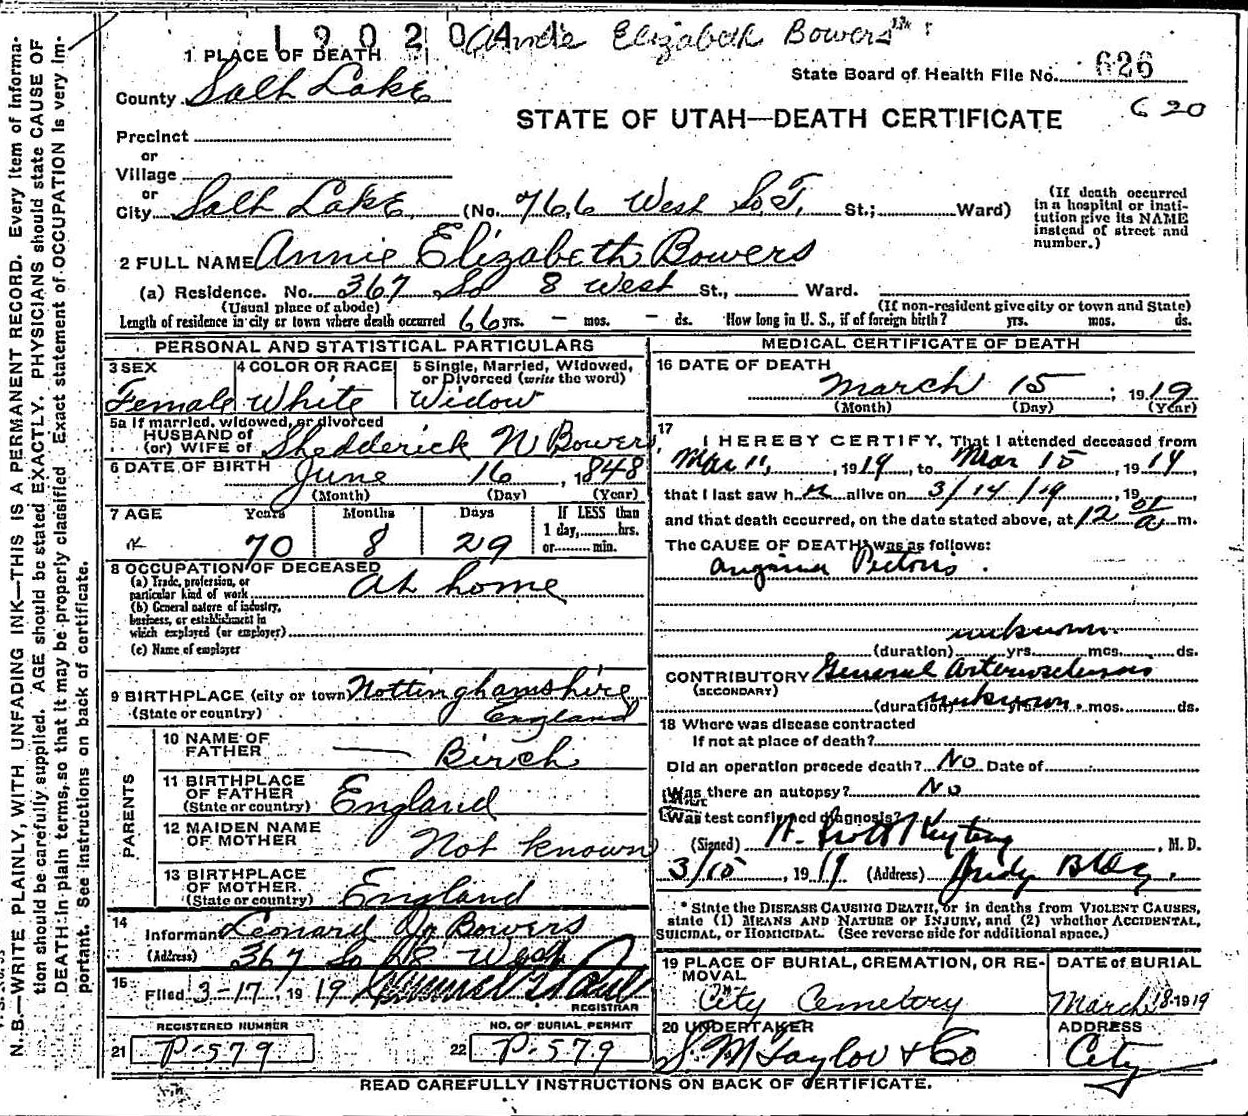 1902041 Annie Elizabeth Bowers
1 PLACE OF DEATH
State Board of Health File No. 626
County Salt Lake
620
STATE OF UTAH—DEATH CERTIFICATE
Precinct
or
Village
or
City Salt Lake (No. 766 West So. T. St.; Ward)
(If death occurred in a hospital or insti-
tution give its NAME
instead of street and
number.)
2 FULL NAME Annie Elizabeth Bowers
(a) Residence. No. 367 So 8 West St., Ward.
(Usual place of abode) (If non-resident give city or town and State)
Length of residence in city or town where death occurred 66 yrs. – mos. – ds. How long in U. S., if of foreign birth? yrs. mos. ds.
PERSONAL AND STATISTICAL PARTICULARS
3 SEX 4 COLOR OR RACE 5 Single, Married, Widowed,
or Divorced (write the word)
Female White Widow
5a If married, widowed, or divorced
HUSBAND of
(or) WIFE of Shedderick N Bowers
6 DATE OF BIRTH June 16, 1848
(Month) (Day) (Year)
7 AGE Years Months Days If LESS than
1 day, hrs.
or min.
70 8 29
8 OCCUPATION OF DECEASED
(a) Trade, profession, or
particular kind of work At home
(b) General nature of industry,
business, or establishment in
which employed (or employer)
(c) Name of employer
9 BIRTHPLACE (city or town) Nottinghamshire
(State or country) England
PARENTS
10 NAME OF
FATHER — Birch
11 BIRTHPLACE
OF FATHER
(State or country) England
12 MAIDEN NAME
OF MOTHER Not known
13 BIRTHPLACE
OF MOTHER.
(State or country) England
14
Informant Leonard Bowers
(Address) 367 So 8 West
15
Filed 3-17, 1919
REGISTRAR
REGISTERED NUMBER NO. OF BURIAL PERMIT
21 P-579 22 P-579
MEDICAL CERTIFICATE OF DEATH
16 DATE OF DEATH
March 15; 1919
(Month) (Day) (Year)
17
I HEREBY CERTIFY, That I attended deceased from
Mar 11, 1919, to Mar 15, 1919,
that I last saw her alive on 3/14/19, 19
and that death occurred, on the date stated above, at 12 a m.
The CAUSE OF DEATH* was as follows:
Angina Pectoris.
unknown
(duration) yrs. mos. ds.
CONTRIBUTORY General Arteriosclerosis
(SECONDARY)
(duration) unknown yrs. mos. ds.
18 Where was disease contracted
If not at place of death?
Did an operation precede death? No Date of
Was there an autopsy? No
Was test confirmed diagnosis?
(Signed) , M. D.
3/15, 1919 (Address) Judge Bldg.
* State the DISEASE CAUSING DEATH, or in deaths from VIOLENT CAUSES,
state (1) MEANS AND NATURE OF INJURY, and (2) whether ACCIDENTAL,
SUICIDAL, or HOMICIDAL. (See reverse side for additional space.)
19 PLACE OF BURIAL, CREMATION, OR RE-
MOVAL
City Cemetery
DATE of BURIAL
March 18-1919
20 UNDERTAKER
S. M Taylor & Co
ADDRESS
City
READ CAREFULLY INSTRUCTIONS ON BACK OF CERTIFICATE.
N. B.—WRITE PLAINLY, WITH UNFADING INK—THIS IS A PERMANENT RECORD. Every item of informa-
tion should be carefully supplied. AGE should be stated EXACTLY. PHYSICIANS should state CAUSE OF
DEATH in plain terms, so that it may be properly classified. Exact statement of OCCUPATION is very im-
portant. See instructions on back of certificate.